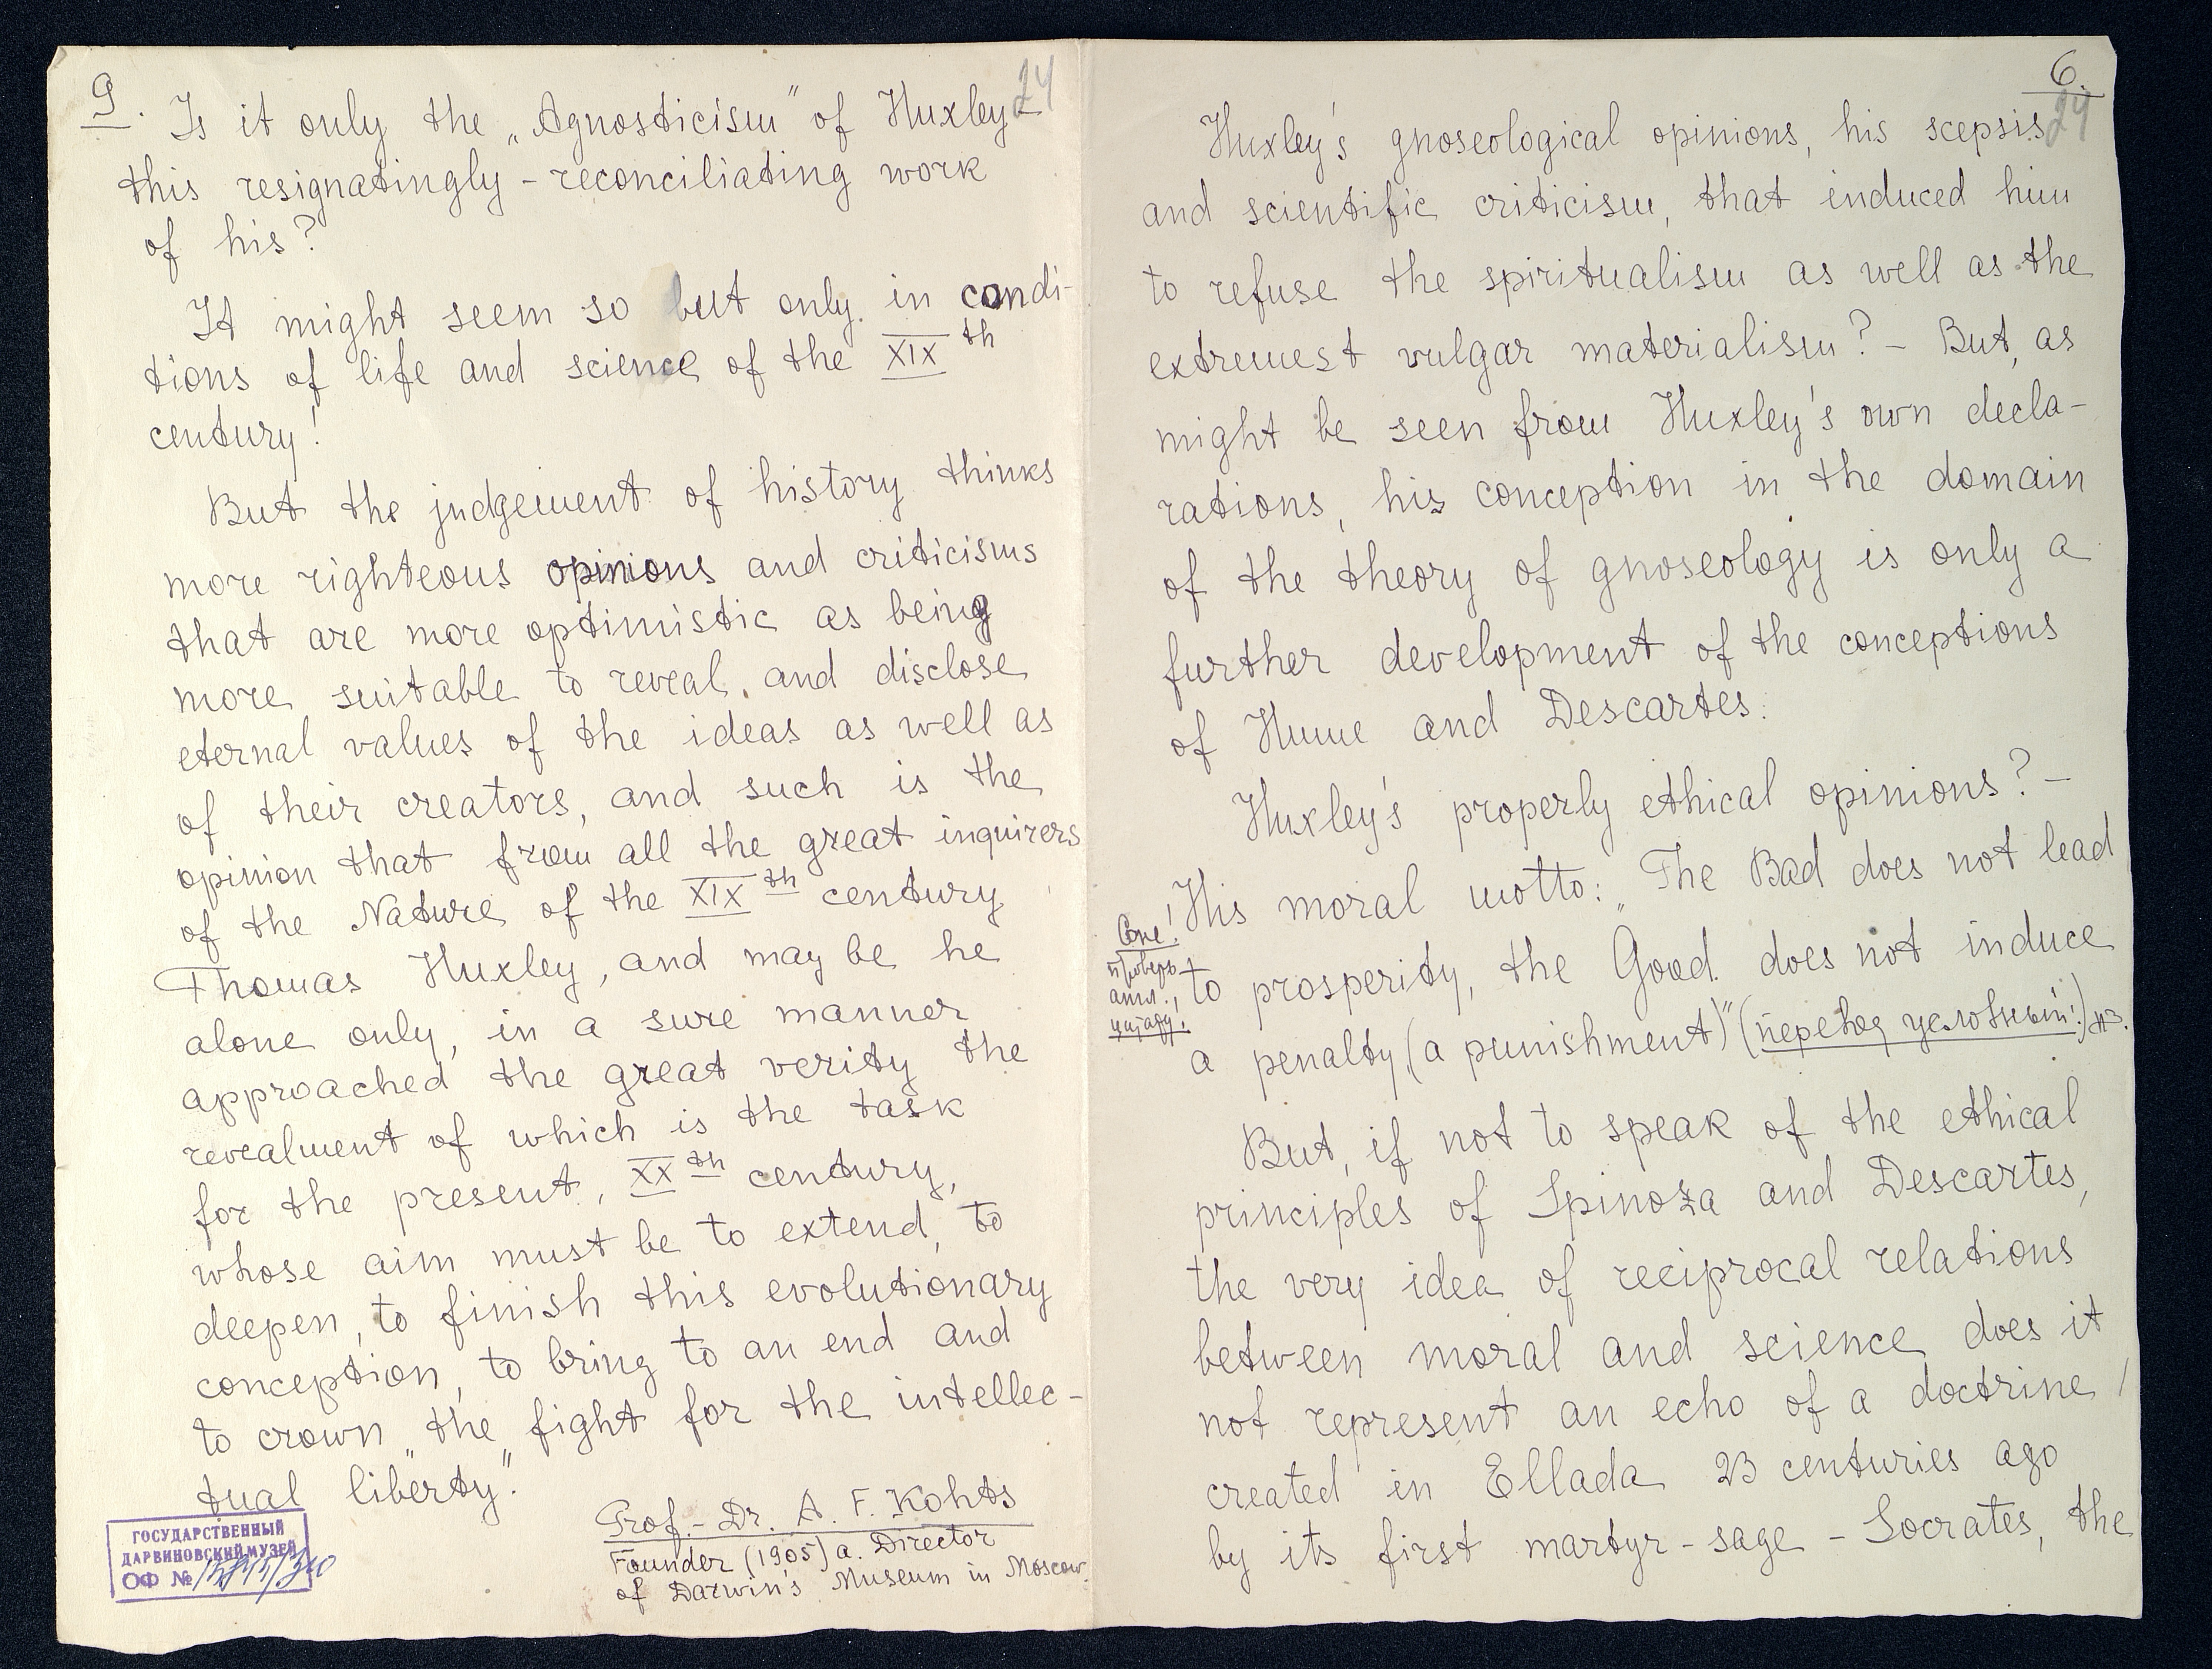 9.
24
Is it only the „Agnosticism" of Huxley
this resignatingly-reconciliating work
of his?
It might seem so but only in condi-
tions of life and science of the XIXth
century!
But the judgement of history thinks
more righteous opinions and criticisms
that are more optimistic as being
more suitable to reveal and disclose
eternal values of the ideas as well as
of their creators, and such is the
opinion that from all the great inquirers
of the Nature of the XIXth century
Thomas Huxley, and may be he
alone only, in a sure manner
approached the great verity the
revealment of which is the task
for the present, XXth century,
whose aim must be to extend, to
deepen, to finish this evolutionary
conception, to bring to an end and
to crown „the fight for the intellec-
tual liberty."
Prof.-Dr. A. F. Kohts
Founder (1905) a. Director
of Darwin's Museum in Moscow.
ГОСУДАРСТВЕННЫЙ
ДАРВИНОВСКИЙ МУЗЕЙ
ОФ №
6.
24
Huxley's gnoseological opinions, his scepsis
and scientific criticism, that induced him
to refuse the spiritualism as well as the
extremest vulgar materialism? - But, as
might be seen from Huxley's own decla-
rations, his conception in the domain
of the theory of gnoseology is only a
further development of the conceptions
of Hume and Descartes.
Huxley's properly ethical opinions? -
His moral motto: „The Bad does not lead
to prosperity, the Good does not induce
a penalty (a punishment)" (перевод условный!)
But, if not to speak of the ethical
principles of Spinoza and Descartes,
the very idea of reciprocal relations
between moral and science does it
not represent an echo of a doctrine
created in Ellada 23 centuries ago
by its first martyr-sage - Socrates, the